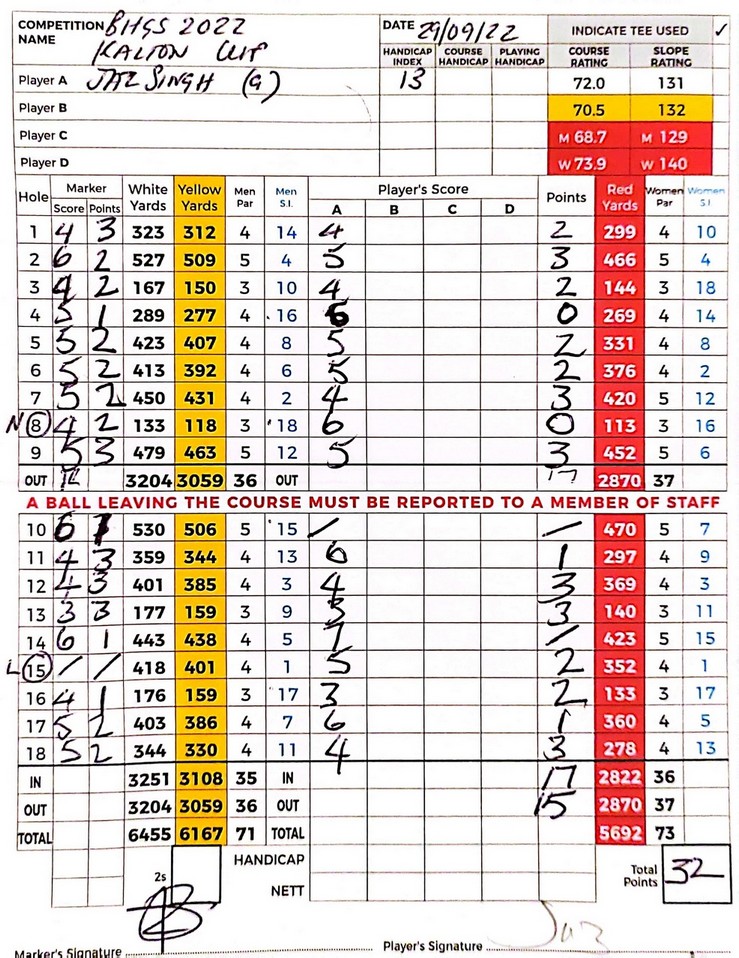 COMPETITION NAME BHGS 2022
KALTON CUP
DATE 29/09/22
INDICATE TEE USED ✓
HANDICAP INDEX COURSE HANDICAP PLAYING HANDICAP COURSE RATING SLOPE RATING
Player A JAZ SINGH (G) 13 72.0 131
Player B 70.5 132
Player C M 68.7 M 129
Player D W 73.9 W 140
Hole Marker White Yards Yellow Yards Men Par Men S.I. Player's Score Points Red Yards Women Par Women S.I
Score Points A B C D
1 4 3 323 312 4 14 4 2 299 4 10
2 6 2 527 509 5 4 5 3 466 5 4
3 4 2 167 150 3 10 4 2 144 3 18
4 5 1 289 277 4 16 6 0 269 4 14
5 5 2 423 407 4 8 5 2 331 4 8
6 5 2 413 392 4 6 5 2 376 4 2
7 5 2 450 431 4 2 4 3 420 5 12
N 8 4 2 133 118 3 18 6 0 113 3 16
9 5 3 479 463 5 12 5 3 452 5 6
OUT 3204 3059 36 OUT 17 2870 37
A BALL LEAVING THE COURSE MUST BE REPORTED TO A MEMBER OF STAFF
10 6 1 530 506 5 15 / / 470 5 7
11 4 3 359 344 4 13 6 1 297 4 9
12 4 3 401 385 4 3 4 3 369 4 3
13 3 3 177 159 3 9 3 3 140 3 11
14 6 1 443 438 4 5 7 / 423 5 15
L 15 / / 418 401 4 1 5 2 352 4 1
16 4 1 176 159 3 17 3 2 133 3 17
17 5 2 403 386 4 7 6 1 360 4 5
18 5 2 344 330 4 11 4 3 278 4 13
IN 3251 3108 35 IN 17 2822 36
OUT 3204 3059 36 OUT 15 2870 37
TOTAL 6455 6167 71 TOTAL 5692 73
2s HANDICAP Total Points 32
NETT
Marker's Signature Player's Signature Jaz